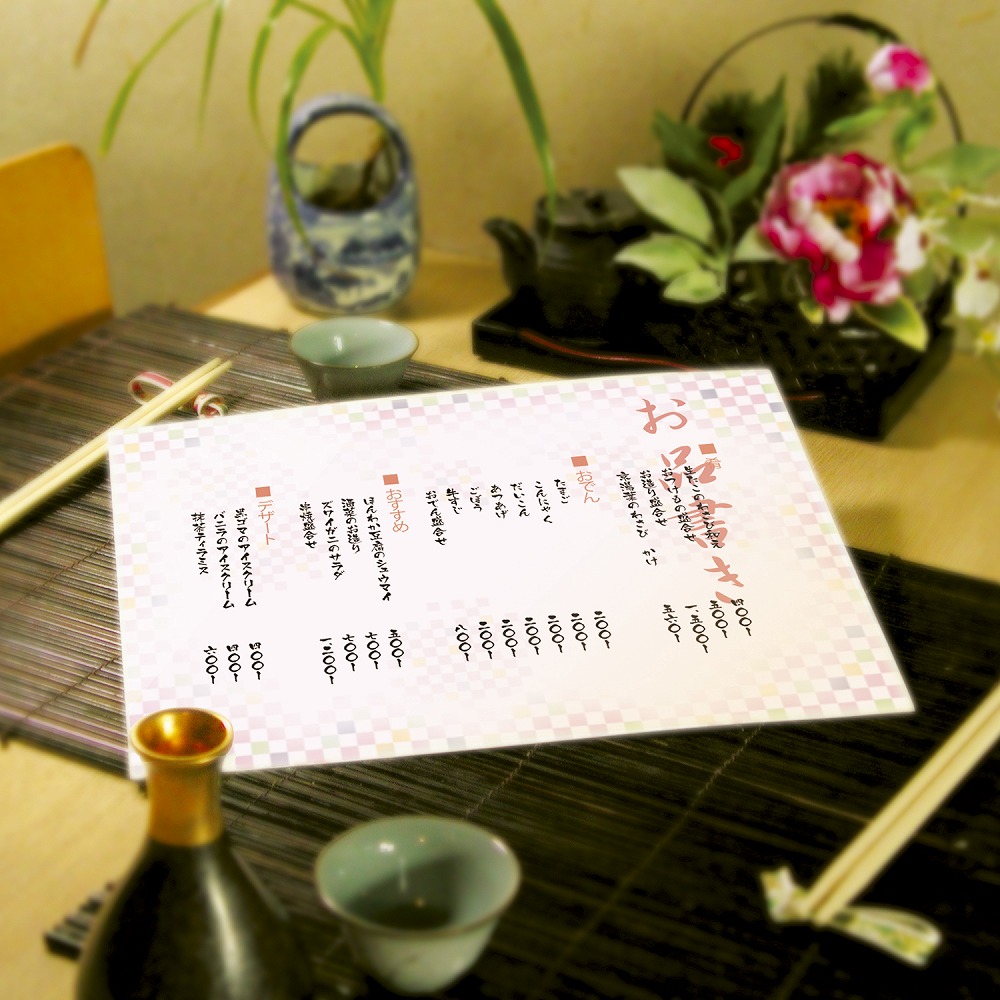 お品書き
■肴
生だこのわさび和え 四〇〇ー
おつけもの盛合せ 五〇〇ー
お造り盛合せ 一、五〇〇ー
京湯葉のわさび かけ 五六〇ー
■おでん
たまご 二〇〇ー
こんにゃく 二〇〇ー
だいこん 二〇〇ー
あつあげ 二〇〇ー
ごぼう 二〇〇ー
牛すじ 二〇〇ー
おでん盛合せ 八〇〇ー
■おすすめ
ほんわか豆腐のシュウマイ 五〇〇ー
海菜のお造り 七〇〇ー
ズワイガニのサラダ 七〇〇ー
串焼盛合せ 一二〇〇ー
■デザート
黒ゴマのアイスクリーム 四〇〇ー
バニラのアイスクリーム 四〇〇ー
抹茶ティラミス 六〇〇ー